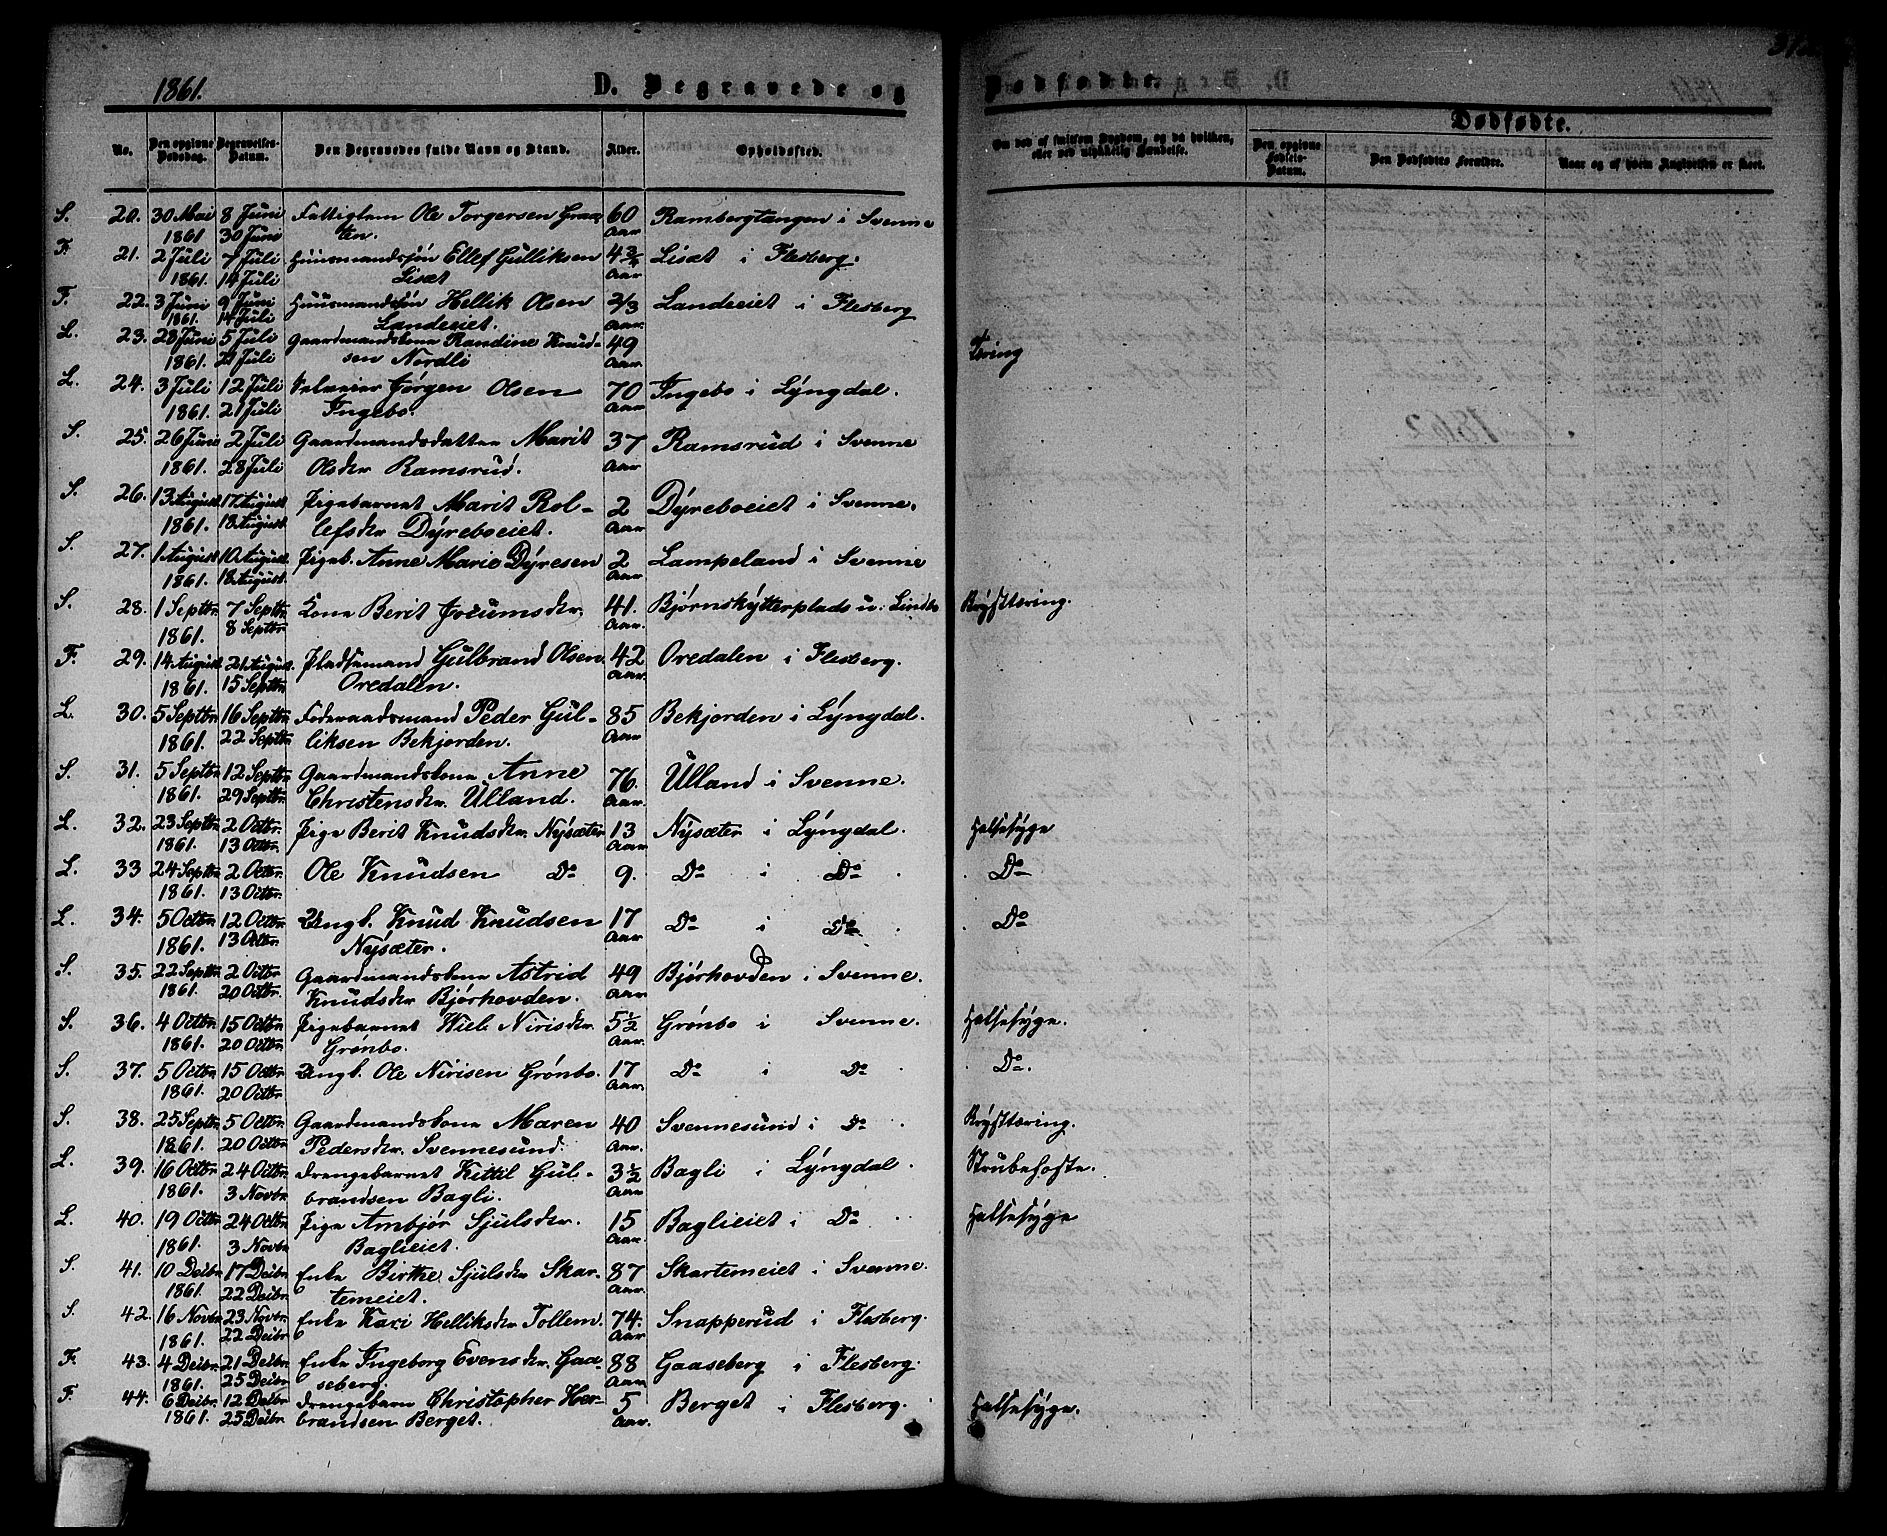 1861.
D. Begravede og
Dødfødte.
No.
Den opgivne Dødsdag.
Begravelses-Datum.
Den Begravedes fulde Navn og Stand.
Alder.
Opholdssted.
Om død af smitsom Sygdom, og da hvilken, eller ved ulykkelig Hændelse.
Dødfødte.
Den opgivne Fødsels-Datum.
Den Dødfødtes Forældre.
Naar og af hvem Angivelsen er skeet.
S. 20. 30 Mai 8 Juni Fattiglem Ole Torgersen 60 Rambergtangen i Svenne
1861 30 Juni Aar
F. 21. 2 Juli 7 Juli Huusmandssøn Ellef Gulliksen 4 3/4 Lisæt i Flesberg.
1861 14 Juli Lisæt Aar
F. 22. 3 Juni 9 Juni Huusmandssøn Hellik Olsen 2/3 Landeeiet i Flesberg
1861. 14 Juli Landeeiet. Aar.
L. 23. 28 Juni 5 Juli Gaardmandskone Randine Knud- 49 Tæring
1861. 21 Juli sen Nordli Aar
L. 24. 3 Juli 12 Juli Jørgen Olsen 70 Ingebo i Lyngdal.
1861. 21 Juli Ingebo. Aar
S. 25. 26 Juni 2 Juli Gaardmandsdatter Marit 37 Ramsrud i Svenne
1861. 28 Juli Olsdr Ramsrud. Aar
S. 26. 13 August 17 August Pigebarnet Marit Rol- 2 Dyreboeiet i Svenne.
1861. 18 August. lefsdr Dyreboeiet. Aar
S. 27. 1 August 10 August Pigeb. Anne Marie Dyresen 2 Lampeland i Svenne
1861. 18 August. Aar
S. 28. 1 Septbr 7 Septbr Kone Berit Jorumsdr. 41. Bjørnskytterplads u: Lindbo Brysttæring.
1861. 8 Septbr Aar.
F. 29. 14 August 21 August. Pladsemand Gulbrand Olsen 42 Oredalen i Flesberg.
1861. 15 Septbr Oredalen. Aar.
L. 30. 5 Septbr 16 Septbr Føderaadsmand Peder Gul- 85 Bekjorden i Lyngdal.
1861. 22 Septbr liksen Bekjorden. Aar
S. 31. 5 Septbr 12 Septbr Gaardmandskone Anne 76. Ulland i Svenne.
1861. 29 Septbr Christensdr Ulland. Aar
L. 32. 23 Septbr 2 Octbr. Pige Berit Knudsdr. Nysæter 13 Nysæter i Lyngdal. Halssyge
1861. 13 Octbr. Aar
L. 33 24 Septbr 2 Octbr. Ole Knudsen Do 9. Do i Do. Do
1861. 13 Octbr.
L. 34. 5 Octbr. 12 Octbr Ungk. Knud Knudsen 17 Do i Do. Do
1861. 13 Octbr. Nysæter. Aar
S. 35. 22 Septbr 2 Octbr Gaardmandskone Astrid 49 Bjørhovden i Svenne.
1861. 20 Octbr. Knudsdr Bjørhovden. Aar
S. 36. 4 Octbr 15 Octbr Pigebarnet Kiel Nirisdr. 5 1/2 Grønbo i Svenne. Halssyge.
1861. 20 Octbr. Grønbo. Aar.
S. 37. 5 Octbr 15 Octbr Ungk. Ole Nirisen Grønbo. 17 Do i Do. Do.
1861. 20 Octbr Aar.
S. 38. 25 Septbr 5 Octbr Gaardmandskone Maren 40 Svennesund i Do. Brysttæring.
1861. 20 Octbr Pedersdr. Svennesund. Aar.
L. 39. 16 Octbr 24 Octbr Drengebarnet Kittil Gul- 3 1/2 Bagli i Lyngdal. Strubehoste.
1861. 3 Novbr. brandsen Bagli. Aar
L. 40. 19 Octbr 24 Octbr Pige Ambjør Sjulsdr. 15 Baglieiet i Do. Halssyge
1861. 3 Novbr Baglieiet. Aar.
S. 41. 10 Decbr 17 Decbr Enke Birthe Sjulsdr Skar- 87 Skartemeiet i Svenne.
1861. 22 Decbr. temeiet. Aar.
S. 42. 16 Novbr 23 Novbr. Enke Kari Helliksdr Tollem. 74. Snapperud i Flesberg.
1861. 22 Decbr Aar
F. 43. 4 Decbr. 21 Decbr. Enke Ingeborg Evensdr. Gaa- 88 Gaaseberg i Flesberg.
1861. 25 Decbr seberg. Aar.
F. 44. 6 Decbr. 12 Decbr Drengebarn Christopher Her- 5 Berget i Flesberg. Halssyge.
1861. 25 Decbr brandsen Berget. Aar.